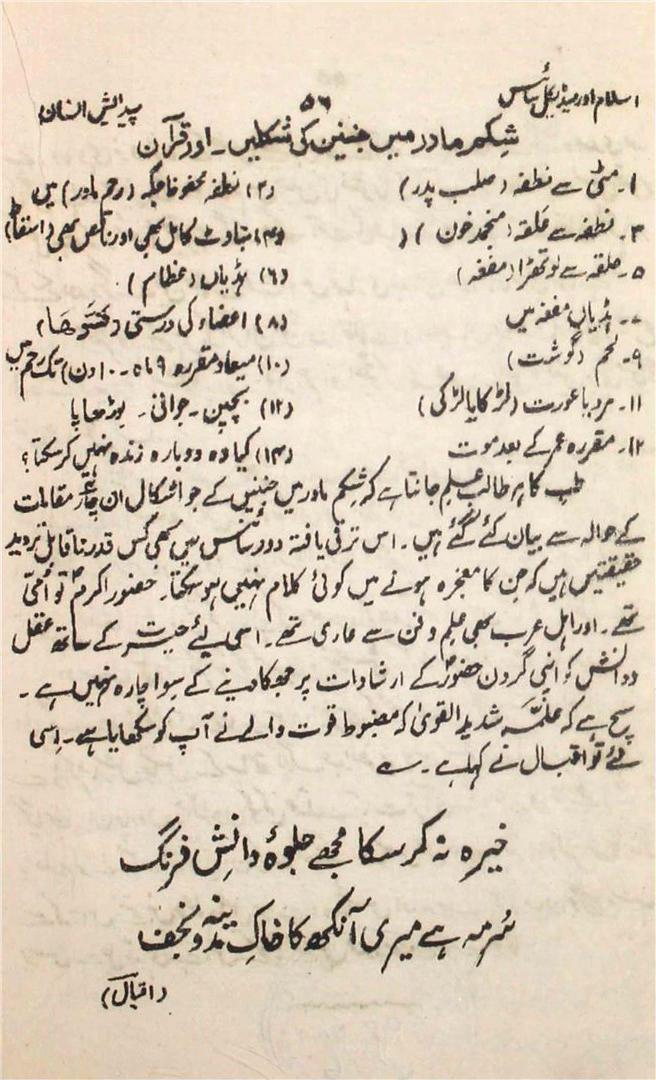 اسلام اور میڈیکل سائنس ۵۶ پیدائش انسان
شکم مادر میں جنین کی شکلیں۔ اور قرآن
۱۔ مٹی سے نطفہ (صلب پدر) (۲) نطفہ محفوظ جگہ (رحم مادر) میں
۳۔ نطفہ سے علقہ (منجمد خون) (۴) بناوٹ کامل بھی اور ناقص بھی (اسقاط)
۵۔ علقہ سے لوتھڑا (مضغہ) (۶) ہڈیاں (عظام)
۷۔ ہڈیاں مضغہ میں (۸) اعضاء کی درستی (کسوھا)
۹۔ لحم (گوشت) (۱۰) میعاد مقررہ ۹ ماہ ۱۰ دن) تک رحم میں
۱۱۔ مرد یا عورت (لڑکا یا لڑکی) (۱۲) بچپن۔ جوانی۔ بوڑھاپا
۱۲۔ مقررہ عمر کے بعد موت (۱۴) کیا وہ دوبارہ زندہ نہیں کر سکتا؟
طب کا ہر طالب علم جانتا ہے کہ شکم مادر میں جنین کے جو اشکال ان مقامات
کے حوالہ سے بیان کئے گئے ہیں۔ اس ترقی یافتہ دور سائنس میں بھی کس قدر ناقابل تردید
حقیقتیں ہیں کہ جن کا معجزہ ہونے میں کوئی کلام نہیں ہو سکتا۔ حضور اکرمؐ تو اُمّی
تھے۔ اور اہل عرب بھی علم و فن سے عاری تھے۔ اسی لیئے حیرت کے ساتھ عقل
و دانش کو اپنی گردن حضورؐ کے ارشادات پر جھکا دینے کے سوا چارہ نہیں ہے۔
سچ ہے کہ علمہ شدید القویٰ کہ مضبوط قوت والے نے آپ کو سکھایا ہے۔ اِسی
لئے تو اقبال نے کہا ہے۔ ؎
خیرہ نہ کر سکا مجھے جلوۂ دانشِ فرنگ
سُرمہ ہے میری آنکھ کا خاکِ مدینہ و نجف
(اقبال)